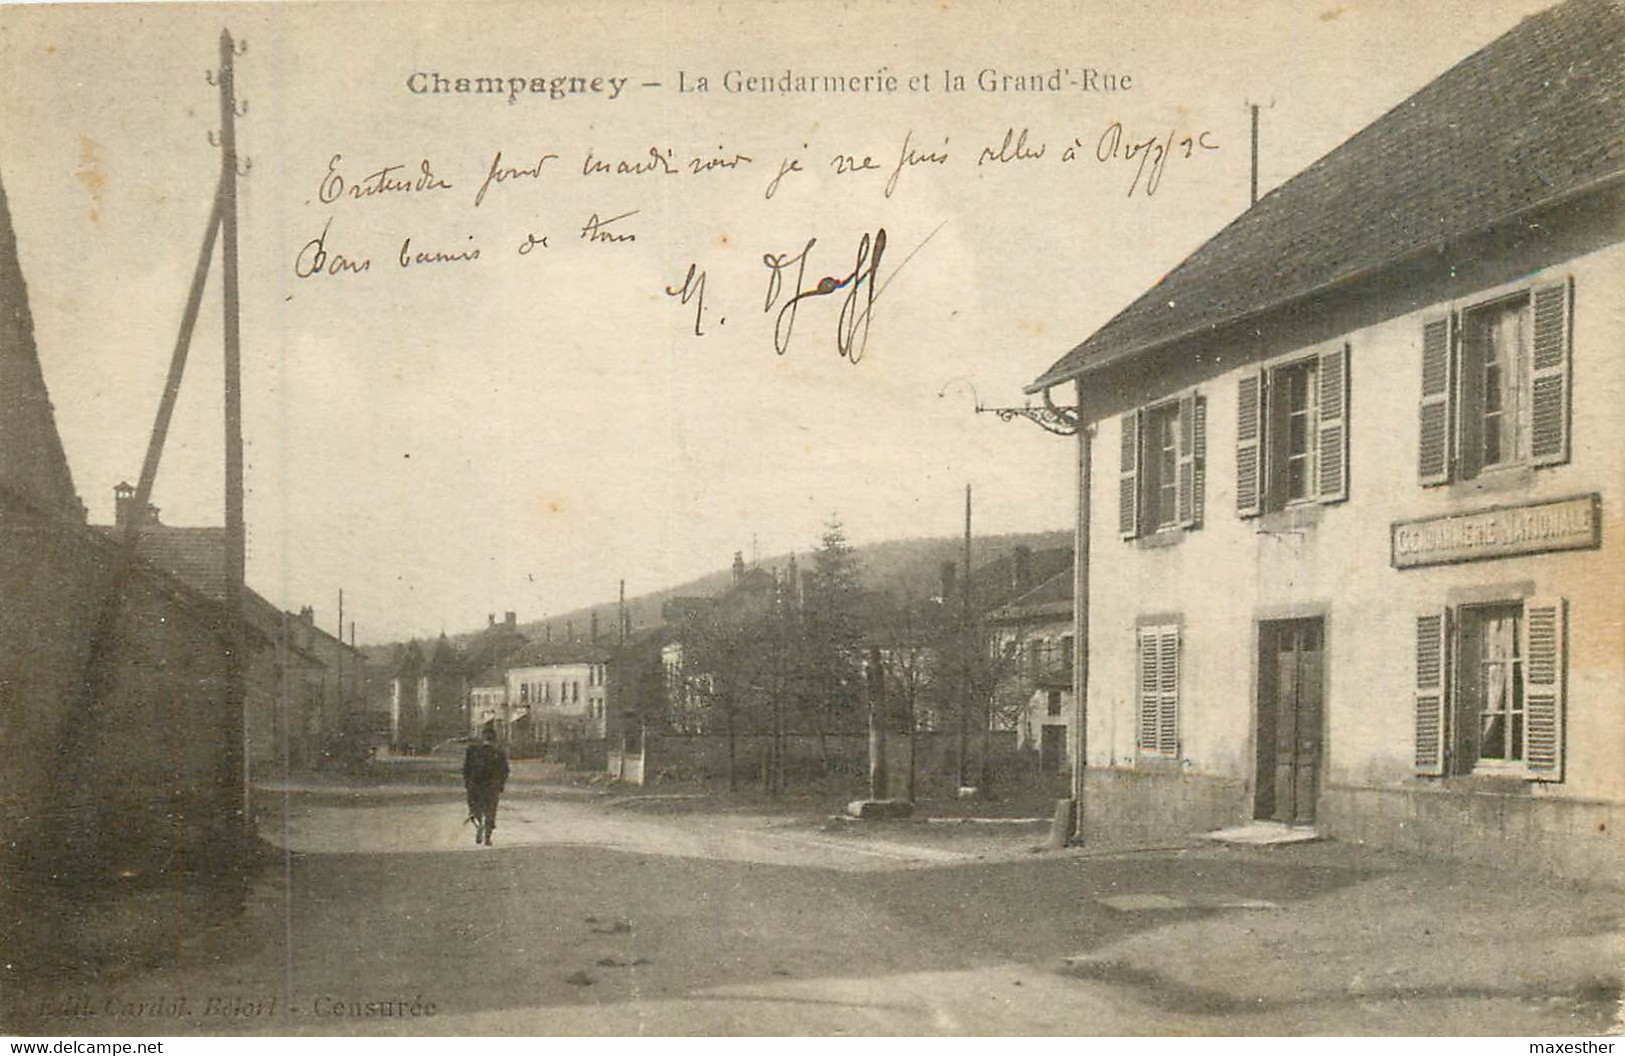 Champagney – La Gendarmerie et la Grand'-Rue
Entendu pour mardi soir je ne suis allé à
Bons baisers de tous
M.
GENDARMERIE NATIONALE
Edit. Cardot. Belfort - Censurée
www.delcampe.net
maxesther